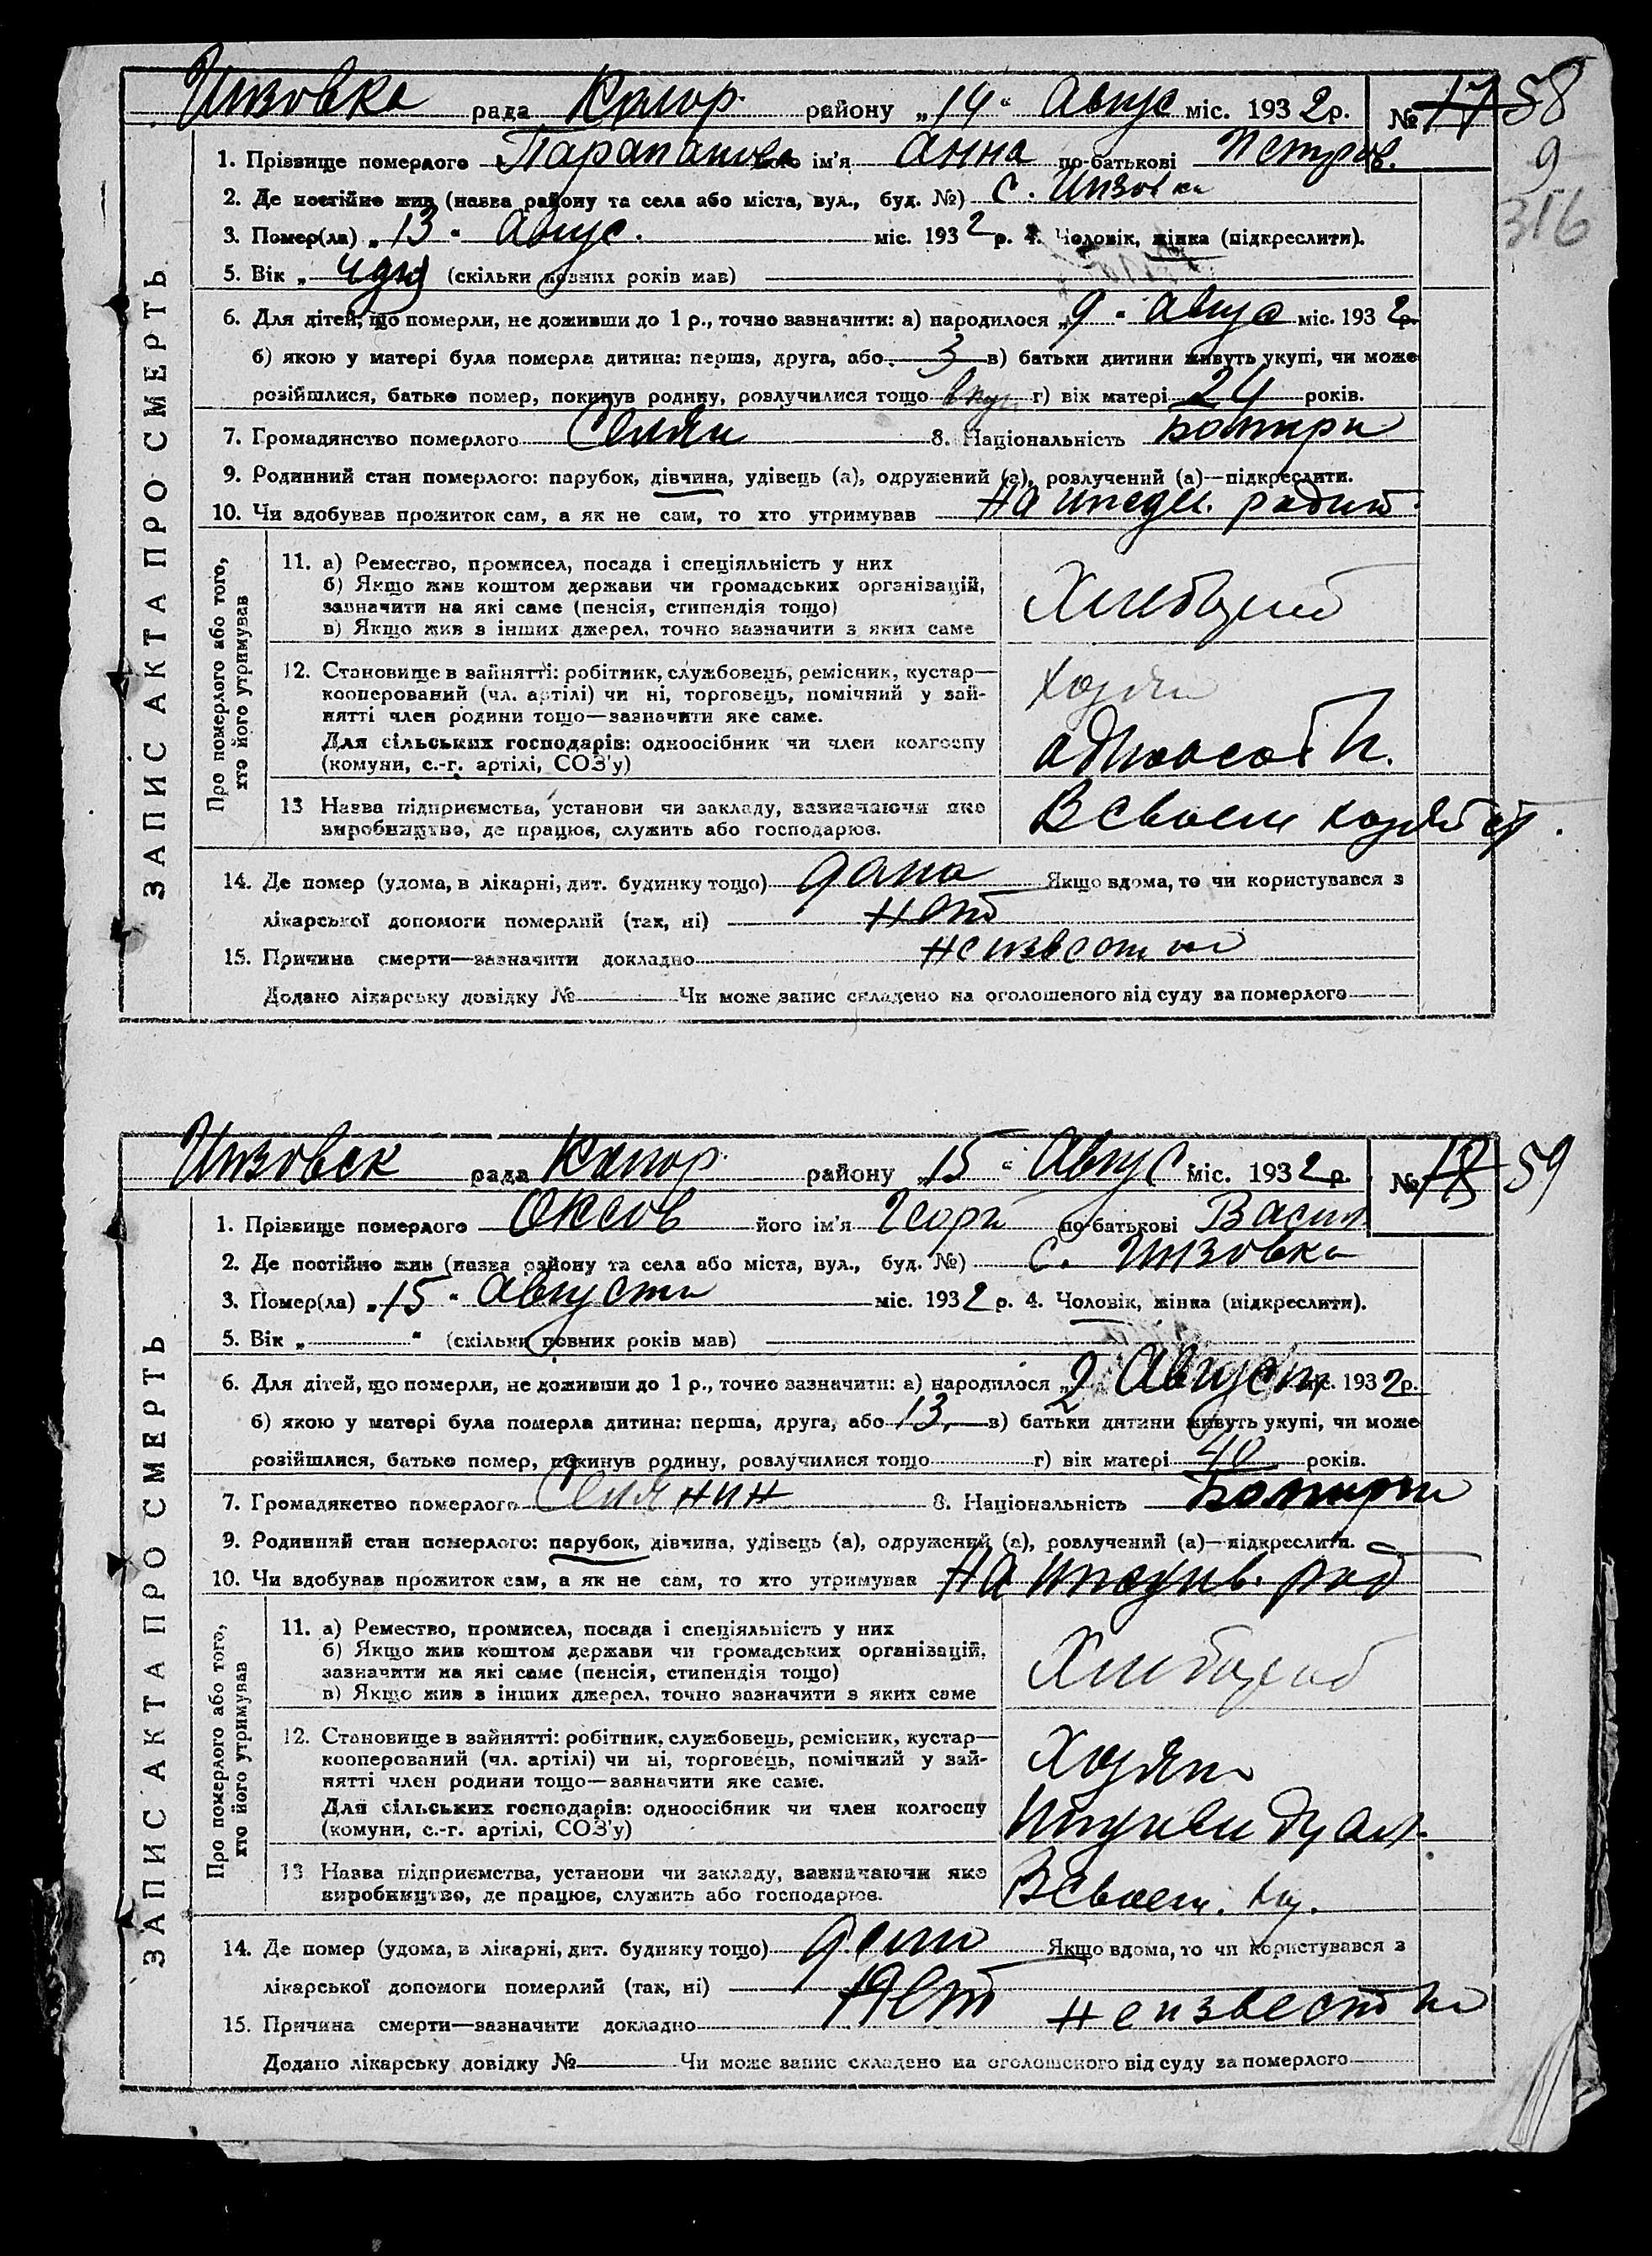 Инзовка рада Комор. району „14“ Авгус міс. 1932р. № 17 58
9
316
1. Прізвище померлого Парапанова його ім'я Анна по-батькові Петров.
2. Де постійно жив (назва району та села або міста, вул., буд. №) С. Инзовка
3. Помер(ла) „13“ Авгус. міс. 1932 р. 4. Чоловік, жінка (підкреслити).
5. Вік „4 дня (скільки повних років мав)
6. Для дітей, що померли, не доживши до 1 р., точно зазначити: а) народилося „9“ Авгус міс. 1932р.
б) якою у матері була померла дитина: перша, друга, або 3 в) батьки дитини живуть укупі, чи може
розійшлися, батько помер, покинув родину, розлучилися тощо г) вік матері 24 років.
7. Громадянство померлого Селян 8. Національність
9. Родинний стан померлого: парубок, дівчина, удівець (а), одружений (а), розлучений (а)—підкреслити.
10. Чи здобував прожиток сам, а як не сам, то хто утримував На
ЗАПИС АКТА ПРО СМЕРТЬ
Про померлого або того, хто його утримував
11. а) Ремество, промисел, посада і спеціяльність у них
б) Якщо жив коштом держави чи громадських організацій,
зазначити на які саме (пенсія, стипендія тощо)
в) Якщо жив з інших джерел, точно зазначити з яких саме
12. Становище в зайнятті: робітник, службовець, ремісник, кустар—
кооперований (чл. артілі) чи ні, торговець, помічний у зай-
нятті член родини тощо—зазначити яке саме.
Хозяин
Для сільських господарів: одноосібник чи член колгоспу
(комуни, с.-г. артілі, СОЗ'у)
13 Назва підприємства, установи чи закладу, зазначаючи яке
виробництво, де працює, служить або господарює.
В своем
14. Де помер (удома, в лікарні, дит. будинку тощо) дома Якщо вдома, то чи користувався з
лікарської допомоги померлий (так, ні) нет
15. Причина смерти—зазначити докладно неизвестно
Додано лікарську довідку № Чи може запис складено на оголошеного від суду за померлого
Инзовск рада Комор. району „15“ Авгус міс. 1932р. № 59
1. Прізвище померлого його ім'я Георги по-батькові Васил
2. Де постійно жив (назва району та села або міста, вул., буд. №) С. Инзовка
3. Помер(ла) „15“ Августа міс. 1932 р. 4. Чоловік, жінка (підкреслити).
5. Вік „ “ (скільки повних років мав)
6. Для дітей, що померли, не доживши до 1 р., точно зазначити: а) народилося „2 Август міс. 1932р.
б) якою у матері була померла дитина: перша, друга, або 13. в) батьки дитини живуть укупі, чи може
розійшлися, батько помер, покинув родину, розлучилися тощо г) вік матері 40 років.
7. Громадянство померлого Селянин 8. Національність
9. Родинний стан померлого: парубок, дівчина, удівець (а), одружений (а), розлучений (а)—підкреслити.
10. Чи здобував прожиток сам, а як не сам, то хто утримував На
ЗАПИС АКТА ПРО СМЕРТЬ
Про померлого або того, хто його утримував
11. а) Ремество, промисел, посада і спеціяльність у них
б) Якщо жив коштом держави чи громадських організацій,
зазначити на які саме (пенсія, стипендія тощо)
в) Якщо жив з інших джерел, точно зазначити з яких саме
12. Становище в зайнятті: робітник, службовець, ремісник, кустар—
кооперований (чл. артілі) чи ні, торговець, помічний у зай-
нятті член родини тощо—зазначити яке саме.
Хозяин
Для сільських господарів: одноосібник чи член колгоспу
(комуни, с.-г. артілі, СОЗ'у)
13 Назва підприємства, установи чи закладу, зазначаючи яке
виробництво, де працює, служить або господарює.
В своем. хоз.
14. Де помер (удома, в лікарні, дит. будинку тощо) дома Якщо вдома, то чи користувався з
лікарської допомоги померлий (так, ні) Нет
15. Причина смерти—зазначити докладно неизвестно
Додано лікарську довідку № Чи може запис складено на оголошеного від суду за померлого